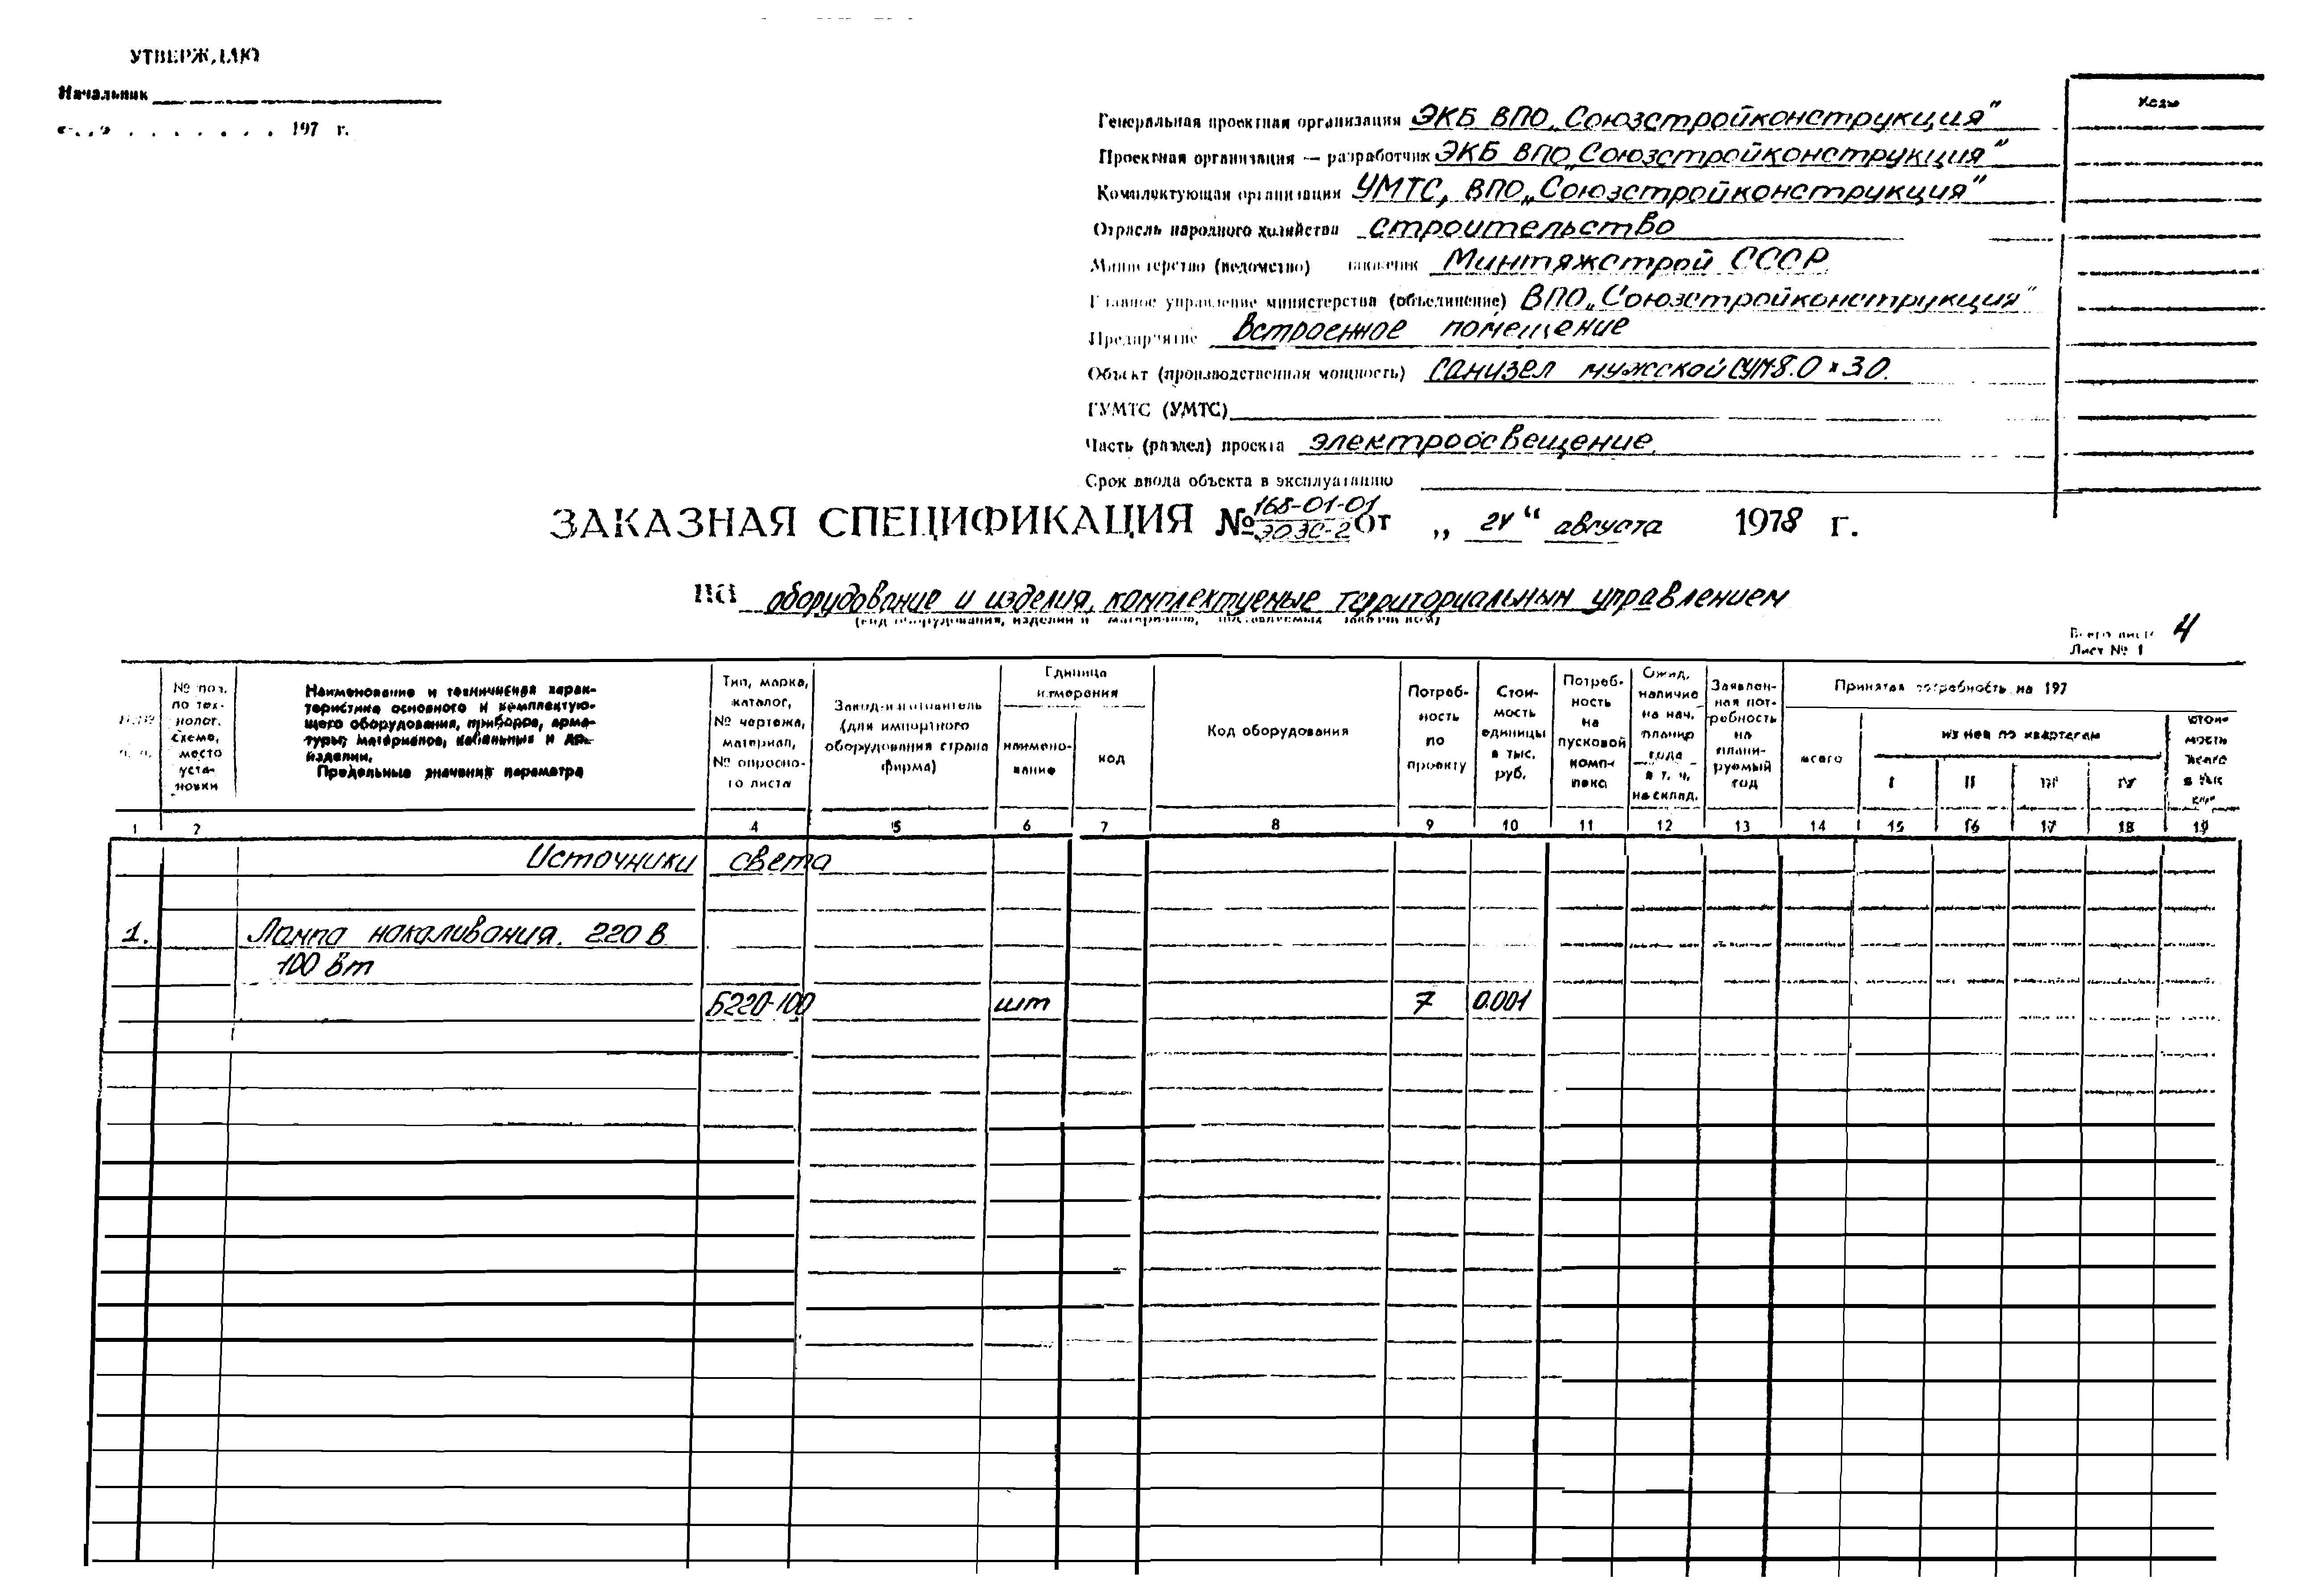 УТВЕРЖДАЮ
Начальник
197 г.
Коды
Генеральная проектная организация ЭКБ ВПО „Союзстройконструкция"
Проектная организация — разработчик ЭКБ ВПО „Союзстройконструкция"
Комплектующая организация УМТС, ВПО „Союзстройконструкция"
Отрасль народного хозяйства строительство
Министерство (ведомство) заказчик Минтяжстрой СССР
Главное управление министерства (объединение) ВПО „Союзстройконструкция"
Предприятие Встроенное помещение
Объект (производственная мощность) Санузел мужской СУМ 8.0×3.0.
ГУМТС (УМТС)
Часть (раздел) проекта электроосвещение.
Срок ввода объекта в эксплуатацию
ЗАКАЗНАЯ СПЕЦИФИКАЦИЯ № 168-01-01 ЭОЗС-2 От „ 24 “ августа 1978 г.
на оборудование и изделия, комплектуемые территориальным управлением
(вид оборудования, изделий и материалов, поставляемых заказчиком)
Всего листов 4
Лист № 1
№ поз. по технолог. схеме, место установки
Наименование и техническая характеристика основного и комплектующего оборудования, приборов, арматуры, материалов, кабельных и др. изделий.
Предельные значения параметра
Тип, марка, каталог, № чертежа, материал, № опросного листа
Завод-изготовитель (для импортного оборудования страна фирма)
Единица измерения
наименование
код
Код оборудования
Потребность по проекту
Стоимость единицы в тыс. руб.
Потребность на пусковой комплекс
Ожид. наличие на нач. планир года в т. ч. на склад.
Заявленная потребность на планируемый год
Принятая потребность на 197
всего
из нее по кварталам
I II III IV
стоимость всего в тыс
1 2 4 5 6 7 8 9 10 11 12 13 14 15 16 17 18 19
Источники света
1. Лампа накаливания. 220 В
100 Вт
Б220-100 шт 7 0.001